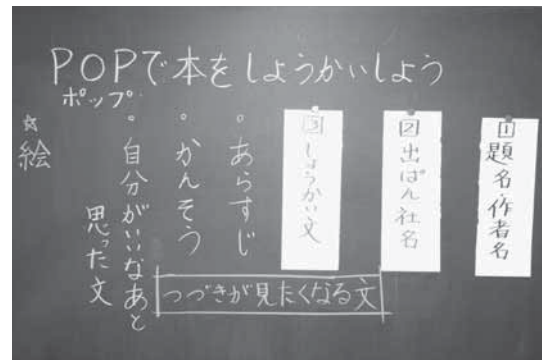 POPで本をしようかいしよう
ポップ
1 題名・作者名
2 出ぱん社名
3 しょうかい文
。あらすじ
。かんそう
。自分がいいなあと
思った文
つづきが見たくなる文
☆絵